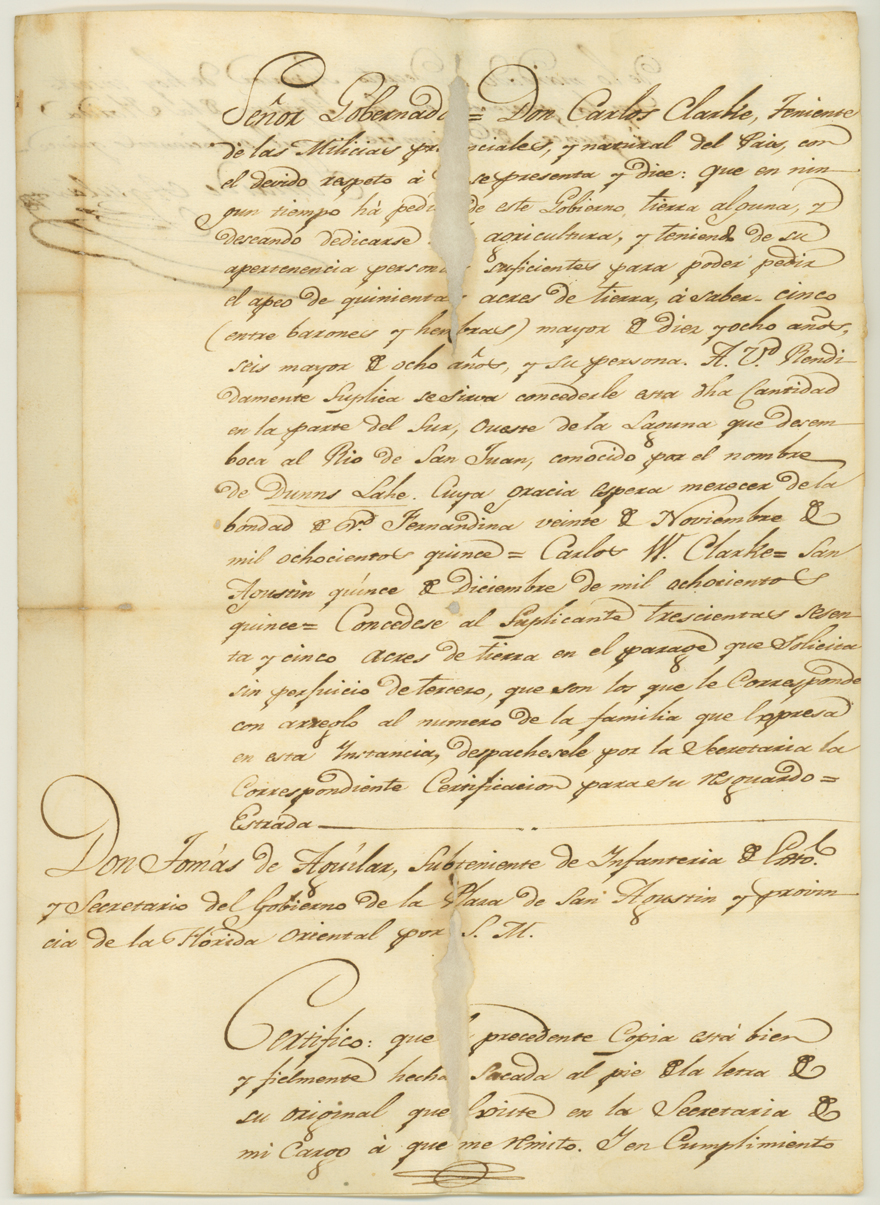 Señor Gobernado = Don Carlos Clarke, Teniente
de las Milicias pro nciales, y natural del Pais, con
el devido respeto á se presenta y dice: que en nin-
gun tiempo há pedi de este Gobierno tierra alguna, y
deseando dedicarse agricultura, y teniendo de su
apertenencia person suficientes para poder pedir
el apeo de quinienta acres de tierra, á saber - cinco
(entre barones y hembras) mayor de diez y ocho años,
seis mayor de ocho años, y su persona. A. V.d Rendi-
damente Suplica se sirva concederle esta dha Cantidad
en la parte del Sur, oueste de la Laguna que desem-
boca al Rio de San Juan, conocido por el nombre
de Dunns Lake. Cuya gracia espera merecer de la
bondad de V.d Fernandina veinte de Noviembre de
mil ochocientos quince = Carlos W. Clarke = San
Agustin quince de Diciembre de mil ochocientos
quince = Concedese al Suplicante trescientas sesen-
ta y cinco acres de tierra en el parage que Solicita
sin perjuicio de tercero, que son los que le Corresponde
con arreglo al numero de la familia que Expresa
en esta Instancia, despachesele por la Secretaria la
Correspondiente Certificacion para su resguardo =
Estrada
Don Tomás de Aguilar, Subteniente de Infanteria de Exto.
y Secretario del Gobierno de la Plaza de San Agustin y provin-
cia de la Florida Oriental por S. M.
Certifico: que precedente Copia está bien
y fielmente hecha sacada al pie de la letra de
su original que Existe en la Secretaria de
mi Cargo á que me remito. Y en Cumplimiento